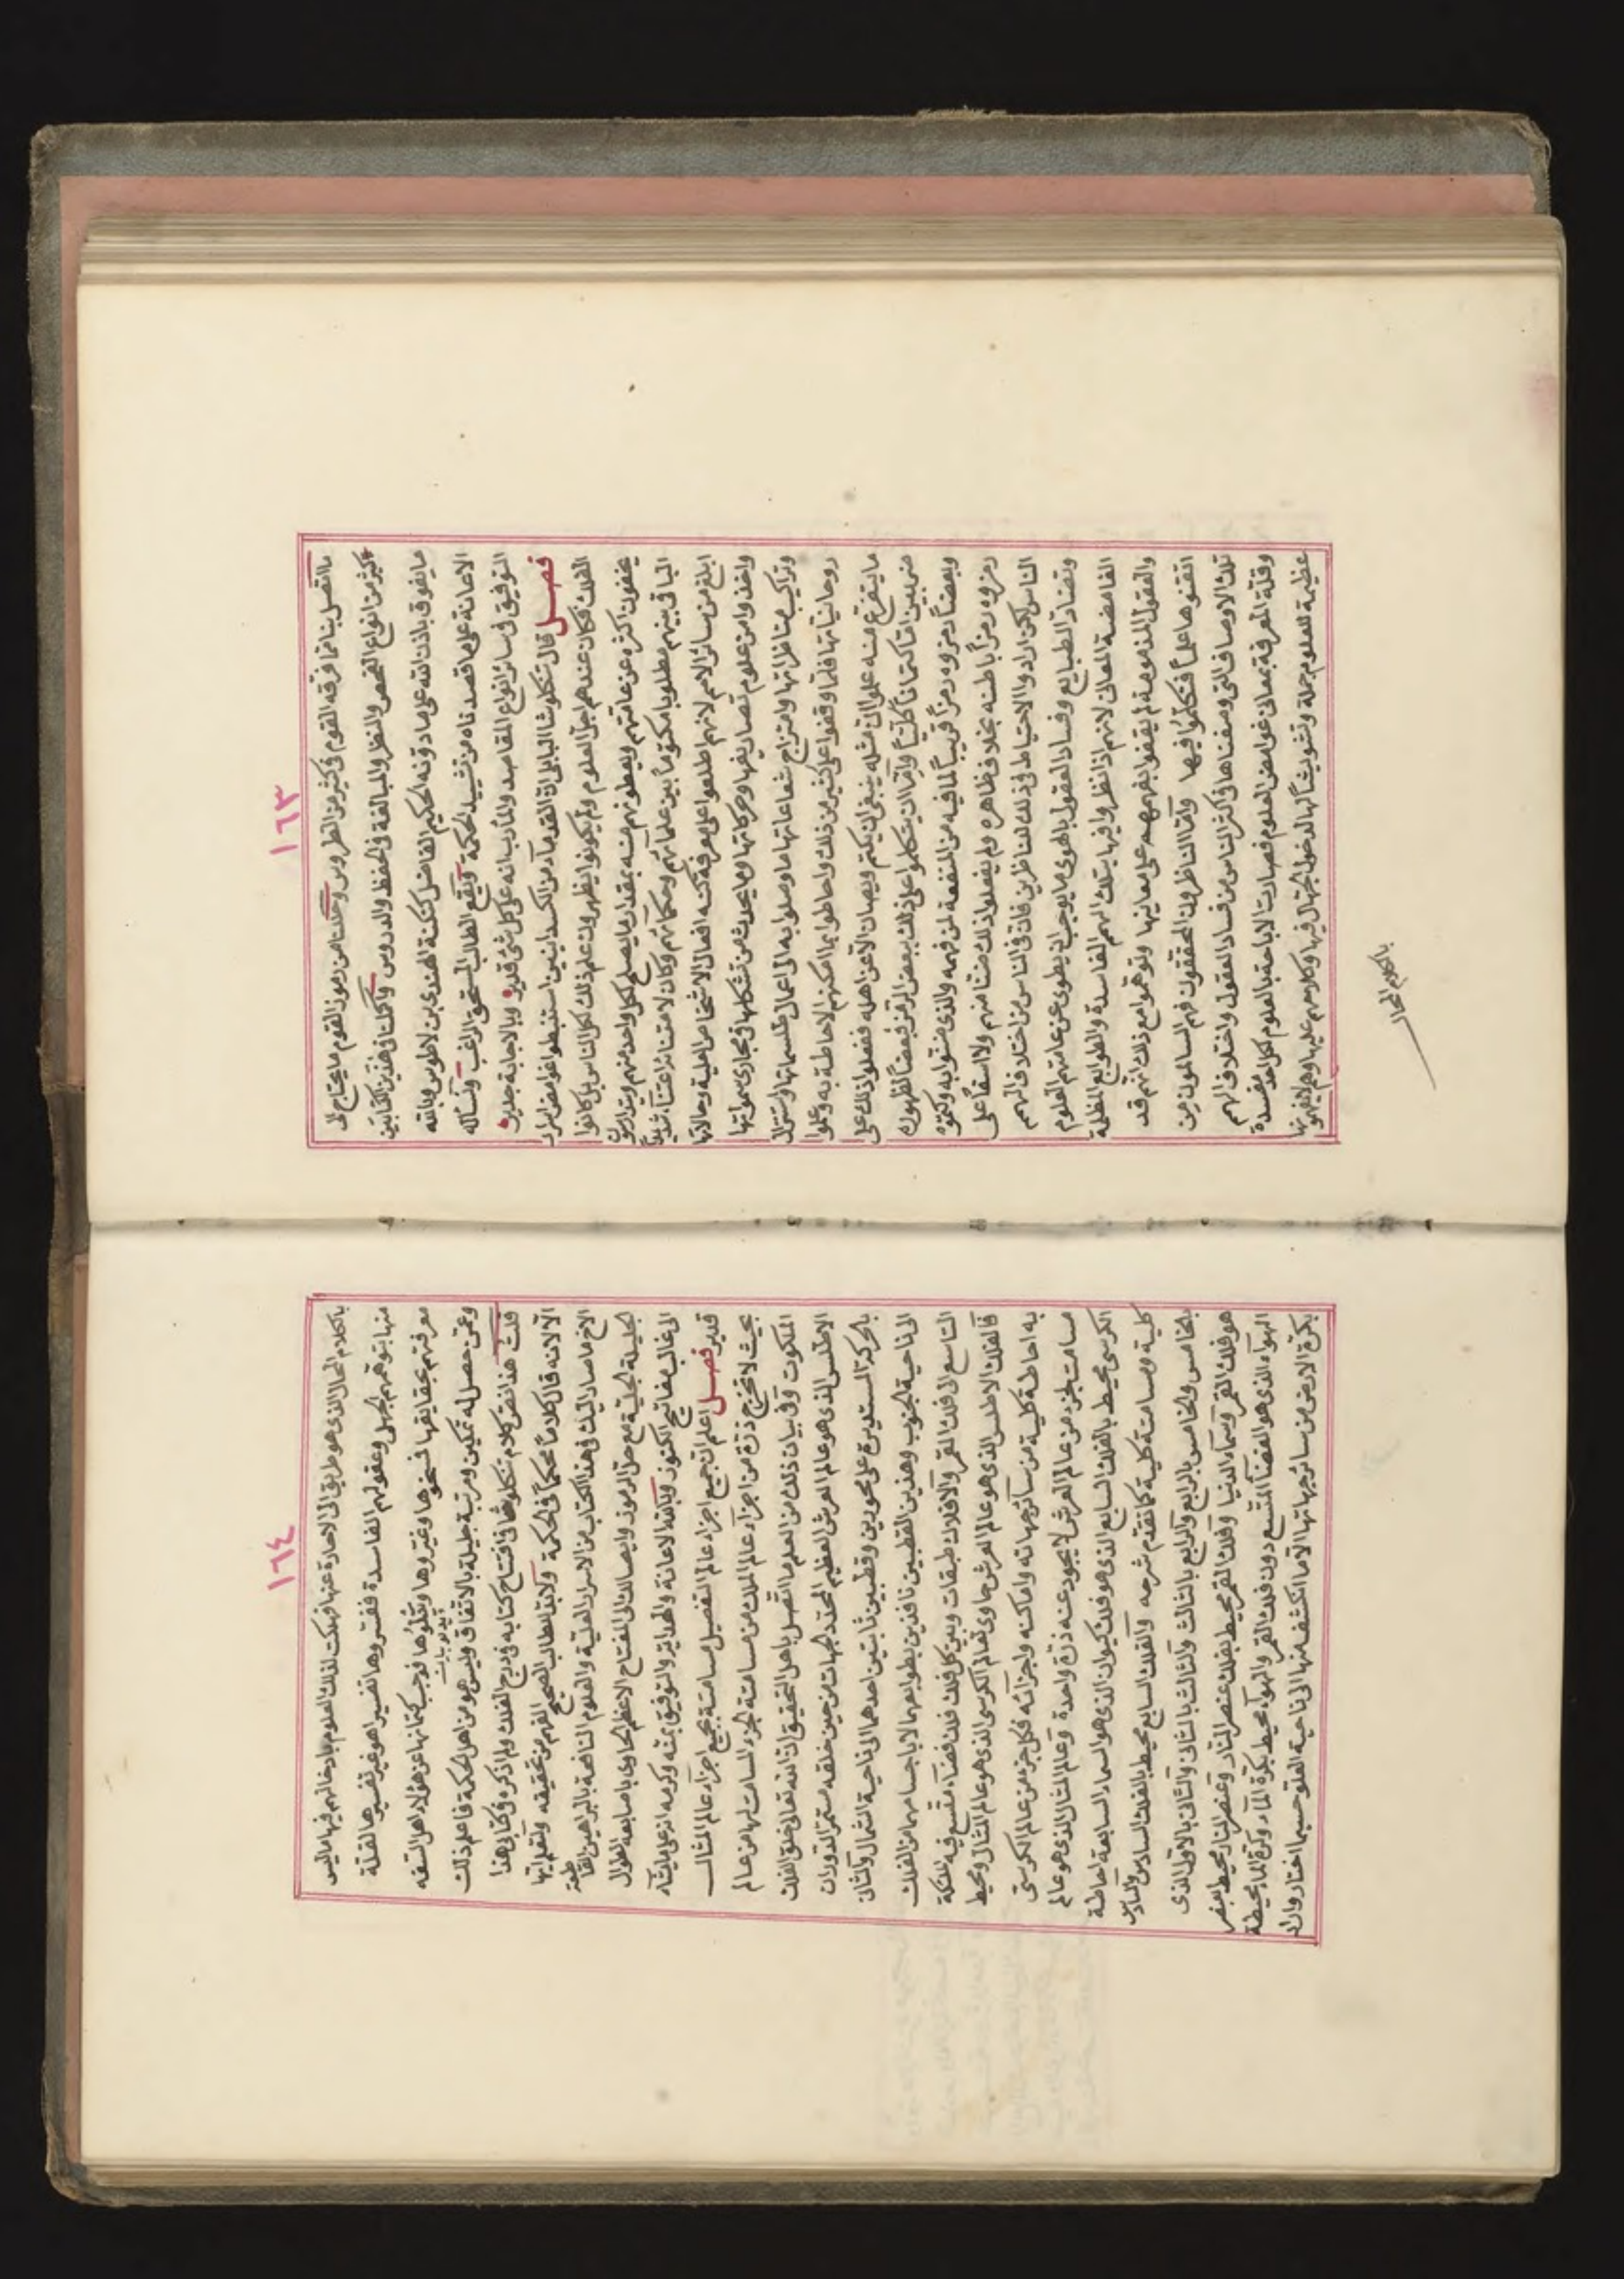 ١٦٣
ما اتصل بنا مما فرقه القوم فى كثير من الطروس وحللنا من رموز القوم ما يحتاج الى
كثير من انواع الفحص والنظر والمبالغة والحفظ والدروس واكملنا فى هذين الكتابين
ما يفوق باذن الله على ما دونه الحكيم الفاضل كنكة الهندى بن لاطوس وبالله
الاعانة على ما قصدناه من تشييد الحكمة ونفع الطالب المستحق الراغب ونسأله
التوفيق فى سائر انواع المقاصد والمأرب انه على كل شئ قدير وبالاجابة جدير
فصل قال تنكلوشا البابلى ان القدماء من الكسدانيين استنبطوا غوامض اسرار
الفلك فكان عندهم اجل العلوم ولم يكونوا يظهرون علم ذلك لكل الناس بل كانوا
يخفون اكثره عن عامتهم ويعطونهم منه بمقدار ما يصلح لكل واحد منهم ويتدارسون
الباقى بينهم مطلوبا مكتوما بين علمائهم وحكمائهم وكان لامتنا من الاعتناء بذلك
ابلغ من سائر الامم لانهم اطلعوا على معرفة كنه افعال الاشخاص العلية وحالاتها
واخذوا من علوم تصاريفها وحركاتها وما يحدث من تشكلها فى مجارى سمواتها
وتراكيب مناظراتها وامتزاج شعاعاتها ما وصلوا به الى اعمال طلسماتها واستنزال
روحانياتها فلما وقفوا على كثير من ذلك واحاطوا بما امكنهم الاحاطة به وعلموا
ما يتفرع منه علموا ان مثله ينبغى ان يكتم ويصان الا عن اهله ففعلوا ذلك على
ضربين اما كتمانا كليا واما ان يتكلموا على ذلك ببعض الرمز فبعضا لظهوره
وبعضا رمزوه رمزا قريبا لما فيه من المنفعة لمن فهمه والذى ضنوا به وكتموه
رمزوه رمزا باطنه بخلاف ظاهره ولم يفعلوا ذلك ضنا منهم ولا اسفا على
الناس لكن ارادوا الاحتياط فى ذلك للناظرين فان فى الناس من اختلاف الهمم
وتضاد الطبايع وفساد العقول بالهوى ما يوجب ان يطوى عن عامتهم العلوم
الغامضة المعانى لانهم اذا نظروا فيها بتلك الهمم الفاسدة والطوابع المظلمة
والعقول المذمومة لم يقفوا بفهمهم على معانيها وتوهموا مع ذلك انهم قد
اتقنوها علما فتكلموا فيها واما الناظرون المحققون فهم السالمون من
تلك الاوصاف التى وصفناها فى اكثر الناس من فساد العقول واختلاف الهمم
وقلة المعرفة بمعانى غوامض العلوم فصارت الاباحة بالعلوم لكل احد مفسدة
عظيمة للعلوم جملة وتشويشا لها لدخول الجهال فيها وكلامهم عليها وهم لا يفهمونها
بالكلام المحال
١٦٤
بالكلام المحال الذى هو طريق الى الاحادة عنها فهلكت لذلك العلوم بادخالهم فيها ما ليس
منها بتوهمهم الجهلى وعقولهم الفاسدة ففسروها تفسيرا هو غير تفسيرها لقلة
معرفتهم بحقايقها فمسخوها وغيروها وبدلوها فوجب كتمانها عن هؤلاء اهل السفه
وعمن حصل له تمكين ومرتبة جليلة بالاتفاق وليس هو من اهل الحكمة فاعلم ذلك
قلت هذا نص كلام تنكلوشا فى افتتاح كتابه فى درج الفلك ولم اذكره فى كتابى هذا
الا لانه قال كلاما محكما فى الحكمة ولابد لطالب الصحيح الفهم من تحقيقه ولتعلم ايها
الاخ ما صار اليك فى هذا الكتاب من الاسرار العلية والعلوم النافعة بالبراهين القاطعة
الجليلة الجلية مع حل الرموز وايصالك الى المفتاح الاعظم الحاوى باصابعه الطوال
الى غالب مفاتيح الكنوز وبالله الاعانة والهداية والتوفيق بمنه وكرمه انه على ما يشاء
قدير فصل اعلم ان جميع اجزاء عالم التفصيل مسامتة بجميع اجزاء عالم المثال
بحيث لا تخرج ذرة من اجزاء عالم الملك من مسامتة الجزء المسامت لها من عالم
الملكوت وفى بيان ذلك من العلم ما اتصل باهل التحقيق ان الله تعالى خلق الفلك
الاطلس الذى هو عالم العرش العظيم المحدد للجهات من حين خلقه مستمر الدوران
بالحركة المستديرة على محورين وقطبين ثابتين احدهما الى ناحية الشمال والثانى
الى ناحية الجنوب وهذين القطبين نافذين بطوابعهما لا باجسامهما من الفلك
التاسع الى فلك القمر والافلاك طبقات وبين كل فلك فلك فضاء متسع فيه ملئكة
فالفلك الاطلس الذى هو عالم العرش حاوى لعالم الكرسى الذى هو عالم المثال ومحيط
به احاطة كلية من سائر جهاته واماكنه واجزائه فكل جزء من عالم الكرسى
مسامت لجزء من عالم العرش لا يحود عنه ذرة واحدة وعالم المثال الذى هو عالم
الكرسى محيط بالفلك السابع الذى هو فلك كيوان الذى هو السماء السابعة احاطة
كلية ومسامتة كلية كما تقدم شرحه والفلك السابع محيط بالفلك السادس والسادس
بالخامس والخامس بالرابع والرابع بالثالث والثالث بالثانى والثانى بالاول الذى
هو فلك القمر وسماء الدنيا وفلك القمر محيط بفلك عنصر النار وعنصر النار محيط بعنصر
الهواء الذى هو الفضاء المتسع دون فلك القمر والهواء محيط بكرة الماء وكرة الماء محيطة
بكرة الارض من سائر جهاتها الا ما انكشف منها الى ناحية العلو حسبما اختار واراد